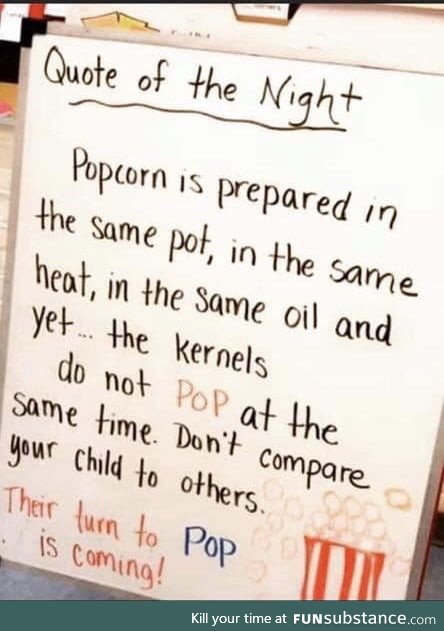 Quote of the Night
Popcorn is prepared in
the same pot, in the same
heat, in the same oil and
yet... the kernels
do not POP at the
same time. Don't compare
your child to others.
Their turn to Pop
is coming!
Kill your time at FUNsubstance.com